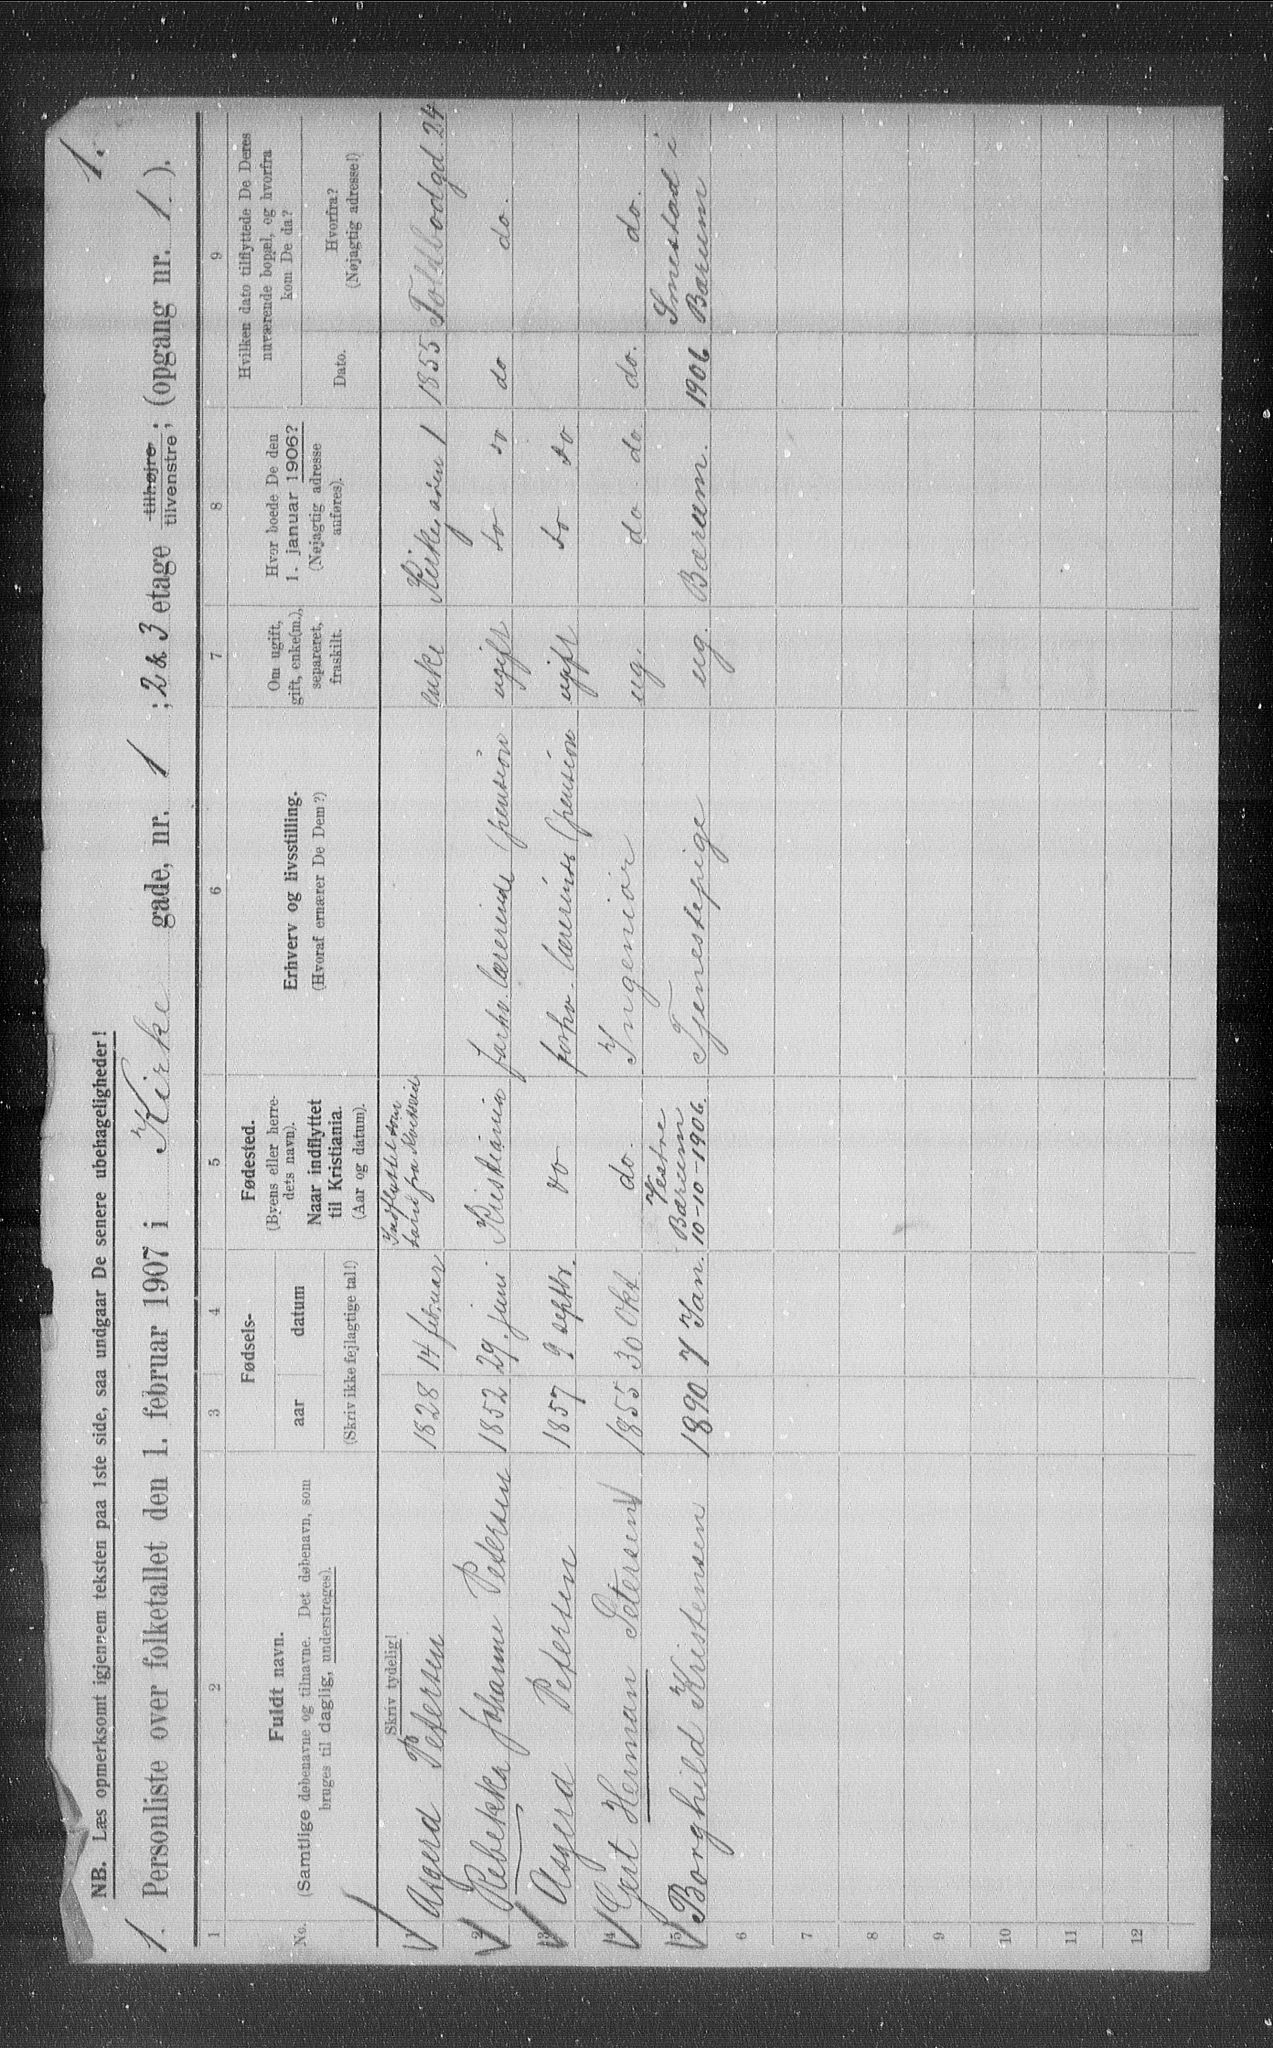 1.
NB. Læs opmerksomt igjennem teksten paa 1ste side, saa undgaar De senere ubehageligheder!
1.
Personliste over folketallet den 1. februar 1907 i Kirke gade, nr. 1 ; 2 & 3 etage tilhøjre tilvenstre; (opgang nr. 1).
1 2 3 4 5 6 7 8 9
No.
Fuldt navn.
(Samtlige døbenavne og tilnavne. Det døbenavn, som
bruges til daglig, understreges).
Fødsels-
aar datum
(Skriv ikke fejlagtige tal!)
Fødested.
(Byens eller herre-
dets navn).
Naar indflyttet
til Kristiania.
(Aar og datum).
Erhverv og livsstilling.
(Hvoraf ernærer De Dem?)
Om ugift,
gift, enke(m.),
separeret,
fraskilt.
Hvor boede De den
1. januar 1906?
(Nøjagtig adresse
anføres).
Hvilken dato tilflyttede De Deres
nuværende bopæl, og hvorfra
kom De da?
Dato.
Hvorfra?
(Nøjagtig adresse!)
Skriv tydelig!
Asgerd Petersen 1828 14 februar Indflyttet som
fra enke Kirkegaden 1 1855 Toldbodgd. 24
2 Rebekka Johanne Petersen 1852 29. juni Kristiania forhv. Lærerinde (pension ugift do do do do.
3 Asgerd Petersen 1857 9 septbr. do forhv. Lærerinde (pension ugift do do
4 Gert Herman Petersen 1855 30 Okt. do. Ingeniør ug. do do. do. do.
5 Borghild Kristensen 1890 7 Jan. Vestre
Bærum
10-10-1906. Tjenestepige ug. Bærum. 1906 Smestad i
Bærum
6
7
8
9
10
11
12